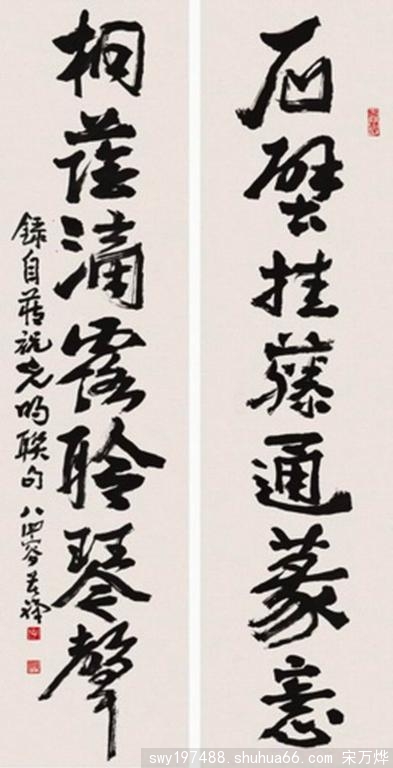 石壁挂藤通篆意
桐蔭滴露聆琴聲
錄自蔣祝 联句
swy197488.shuhua66.com 宋万烨